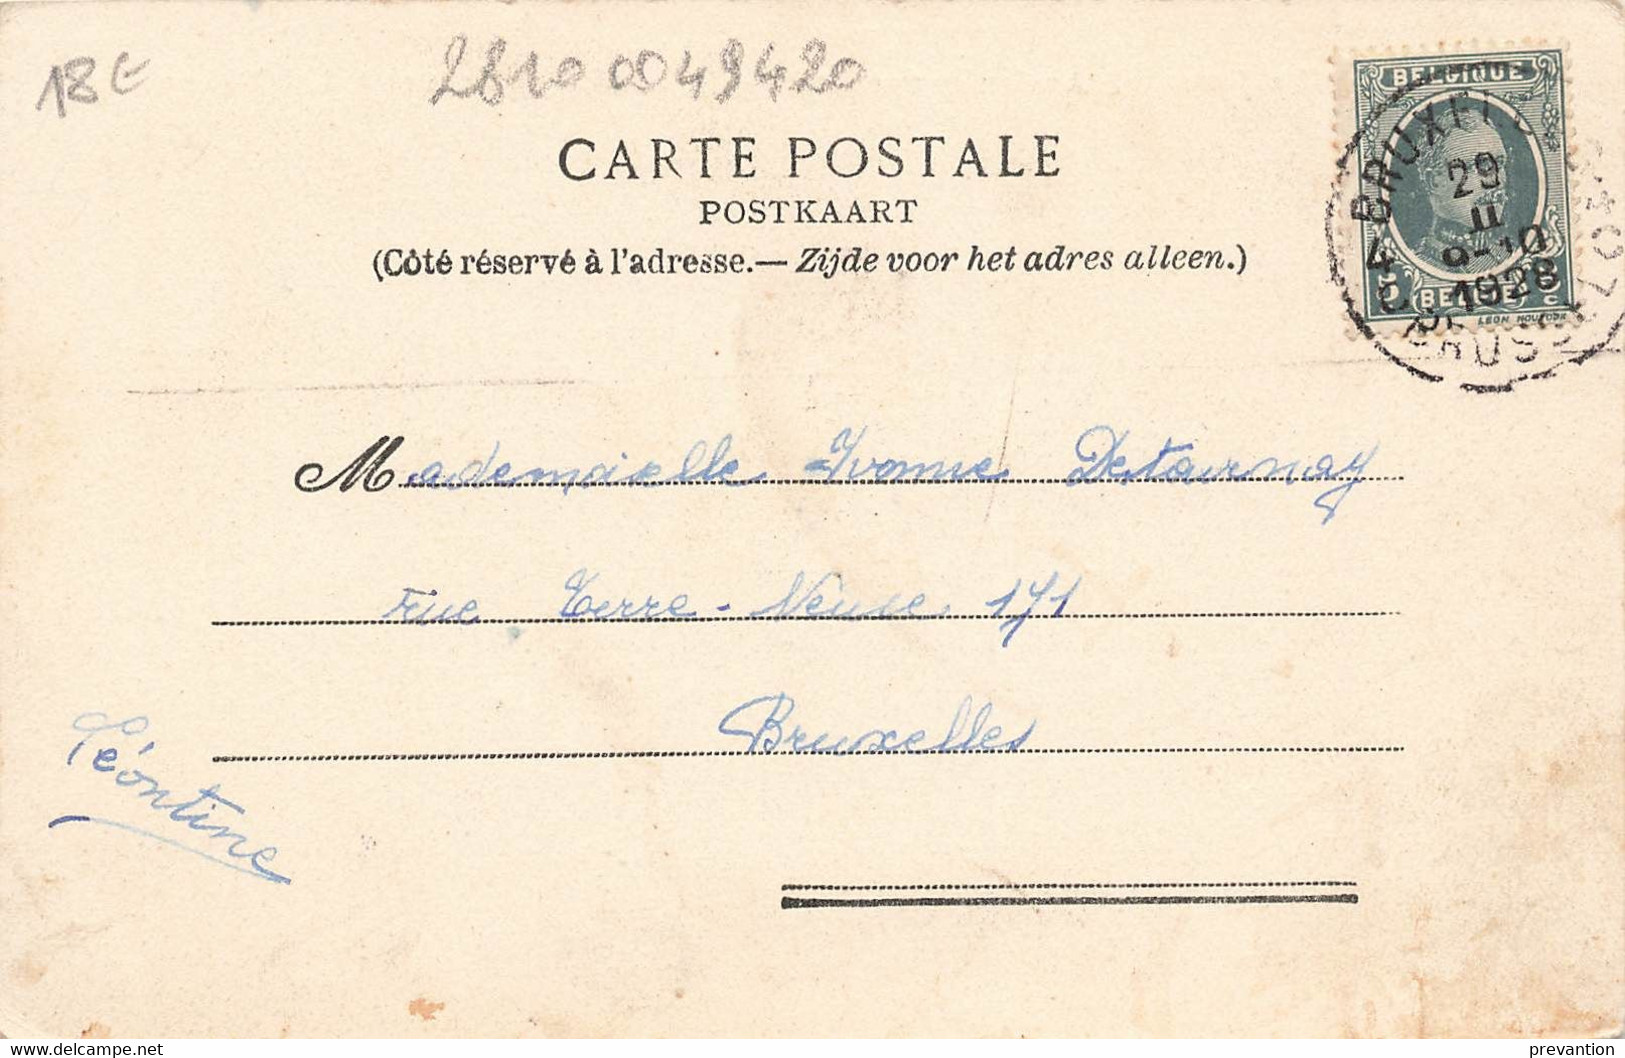 18€
28200049420
CARTE POSTALE
POSTKAART
(Côté réservé à l'adresse.— Zijde voor het adres alleen.)
BELGIQUE
29
II
9-10
1928
5 BELGIE 5
C C
LEON HOUYOUX
Mademoiselle Yvonne Detournay
rue Terre-Neuve 171
Bruxelles
Léontine
http://www.delcampe.net
prevantion